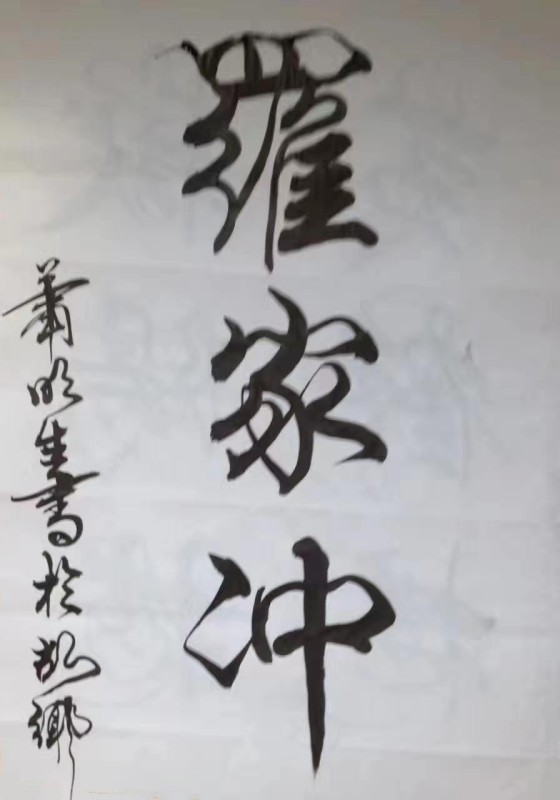 羅家冲
蕭明生書於故鄉